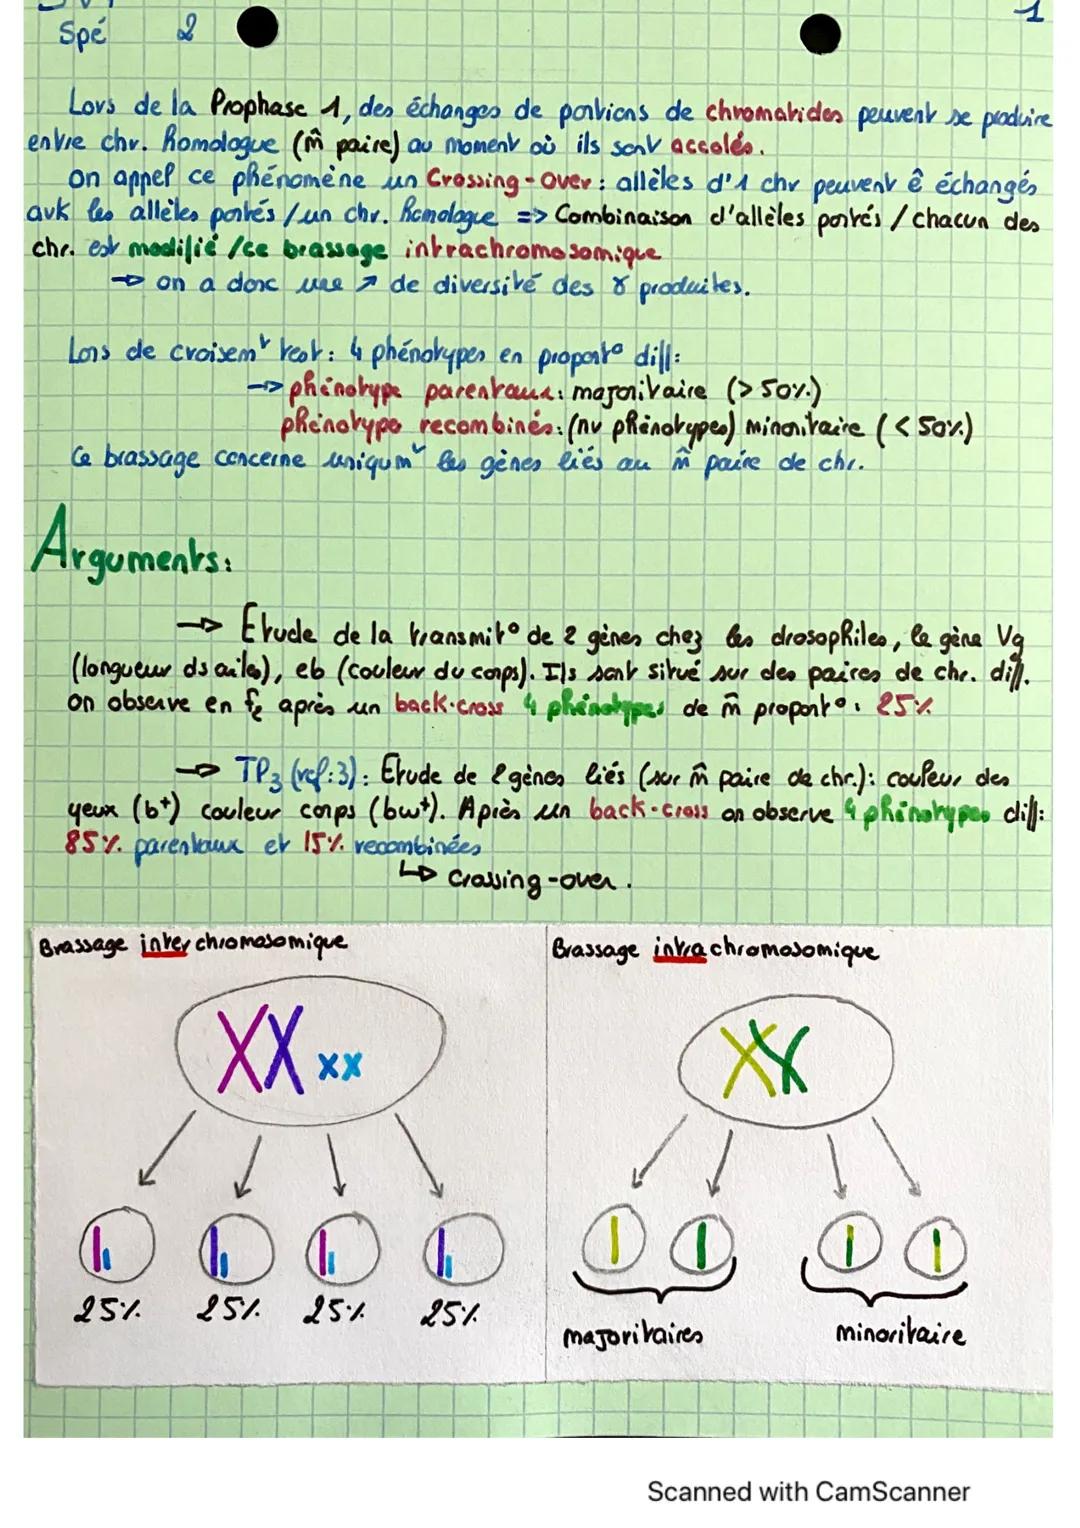 Spé 2 1
Lors de la Prophase 1, des échanges de portions de chromatides peuvent se produire
entre chr. homologue (m̂ paire) au moment où ils sont accolés.
on appel ce phénomène un Crossing-Over : allèles d'1 chr peuvent ê échangés
avk les allèles portés / un chr. Homologue => Combinaison d'allèles portés / chacun des
chr. est modifié / ce brassage intrachromosomique
→ on a donc une ↗ de diversité des γ produites.
Lors de croisemt test : 4 phénotypes en proport° diff :
→ phénotype parentaux : majoritaire (> 50%)
phénotype recombinés : (nv phénotypes) minoritaire (< 50%)
Ce brassage concerne uniqumt les gènes liés au m̂ paire de chr.
Arguments :
→ Etude de la transmit° de 2 gènes chez les drosophiles, le gène Vg
(longueur ds ailes), eb (couleur du corps). Ils sont situé sur des paires de chr. diff.
on observe en f2 après un back-cross 4 phénotypes de m̂ proport° : 25%
→ TP3 (ref:3) : Etude de 2 gènes liés (sur m̂ paire de chr.) : couleur des
yeux (b+) couleur corps (bw+). Après un back-cross on observe 4 phénotypes diff :
85% parentaux et 15% recombinées
↳ Crossing-over.
Brassage interchromosomique
Brassage intrachromosomique
25% 25% 25% 25%
majoritaires minoritaire
Scanned with CamScanner